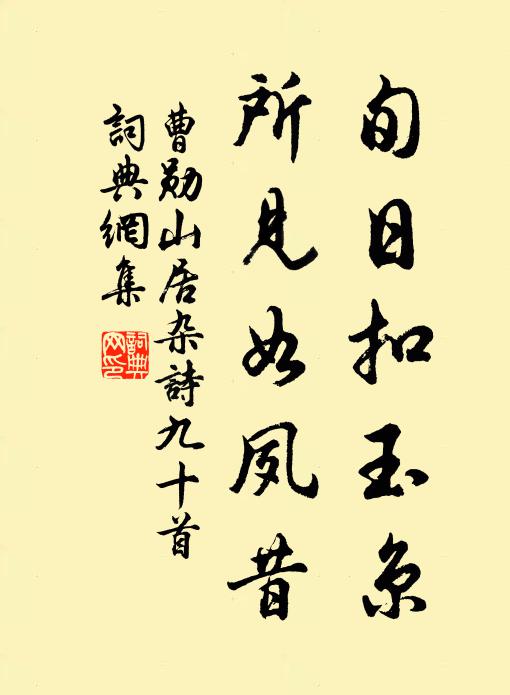 旬日扣玉京
所見如夙昔
曹勛山居杂詩九十首
詞典網集
詞典網印